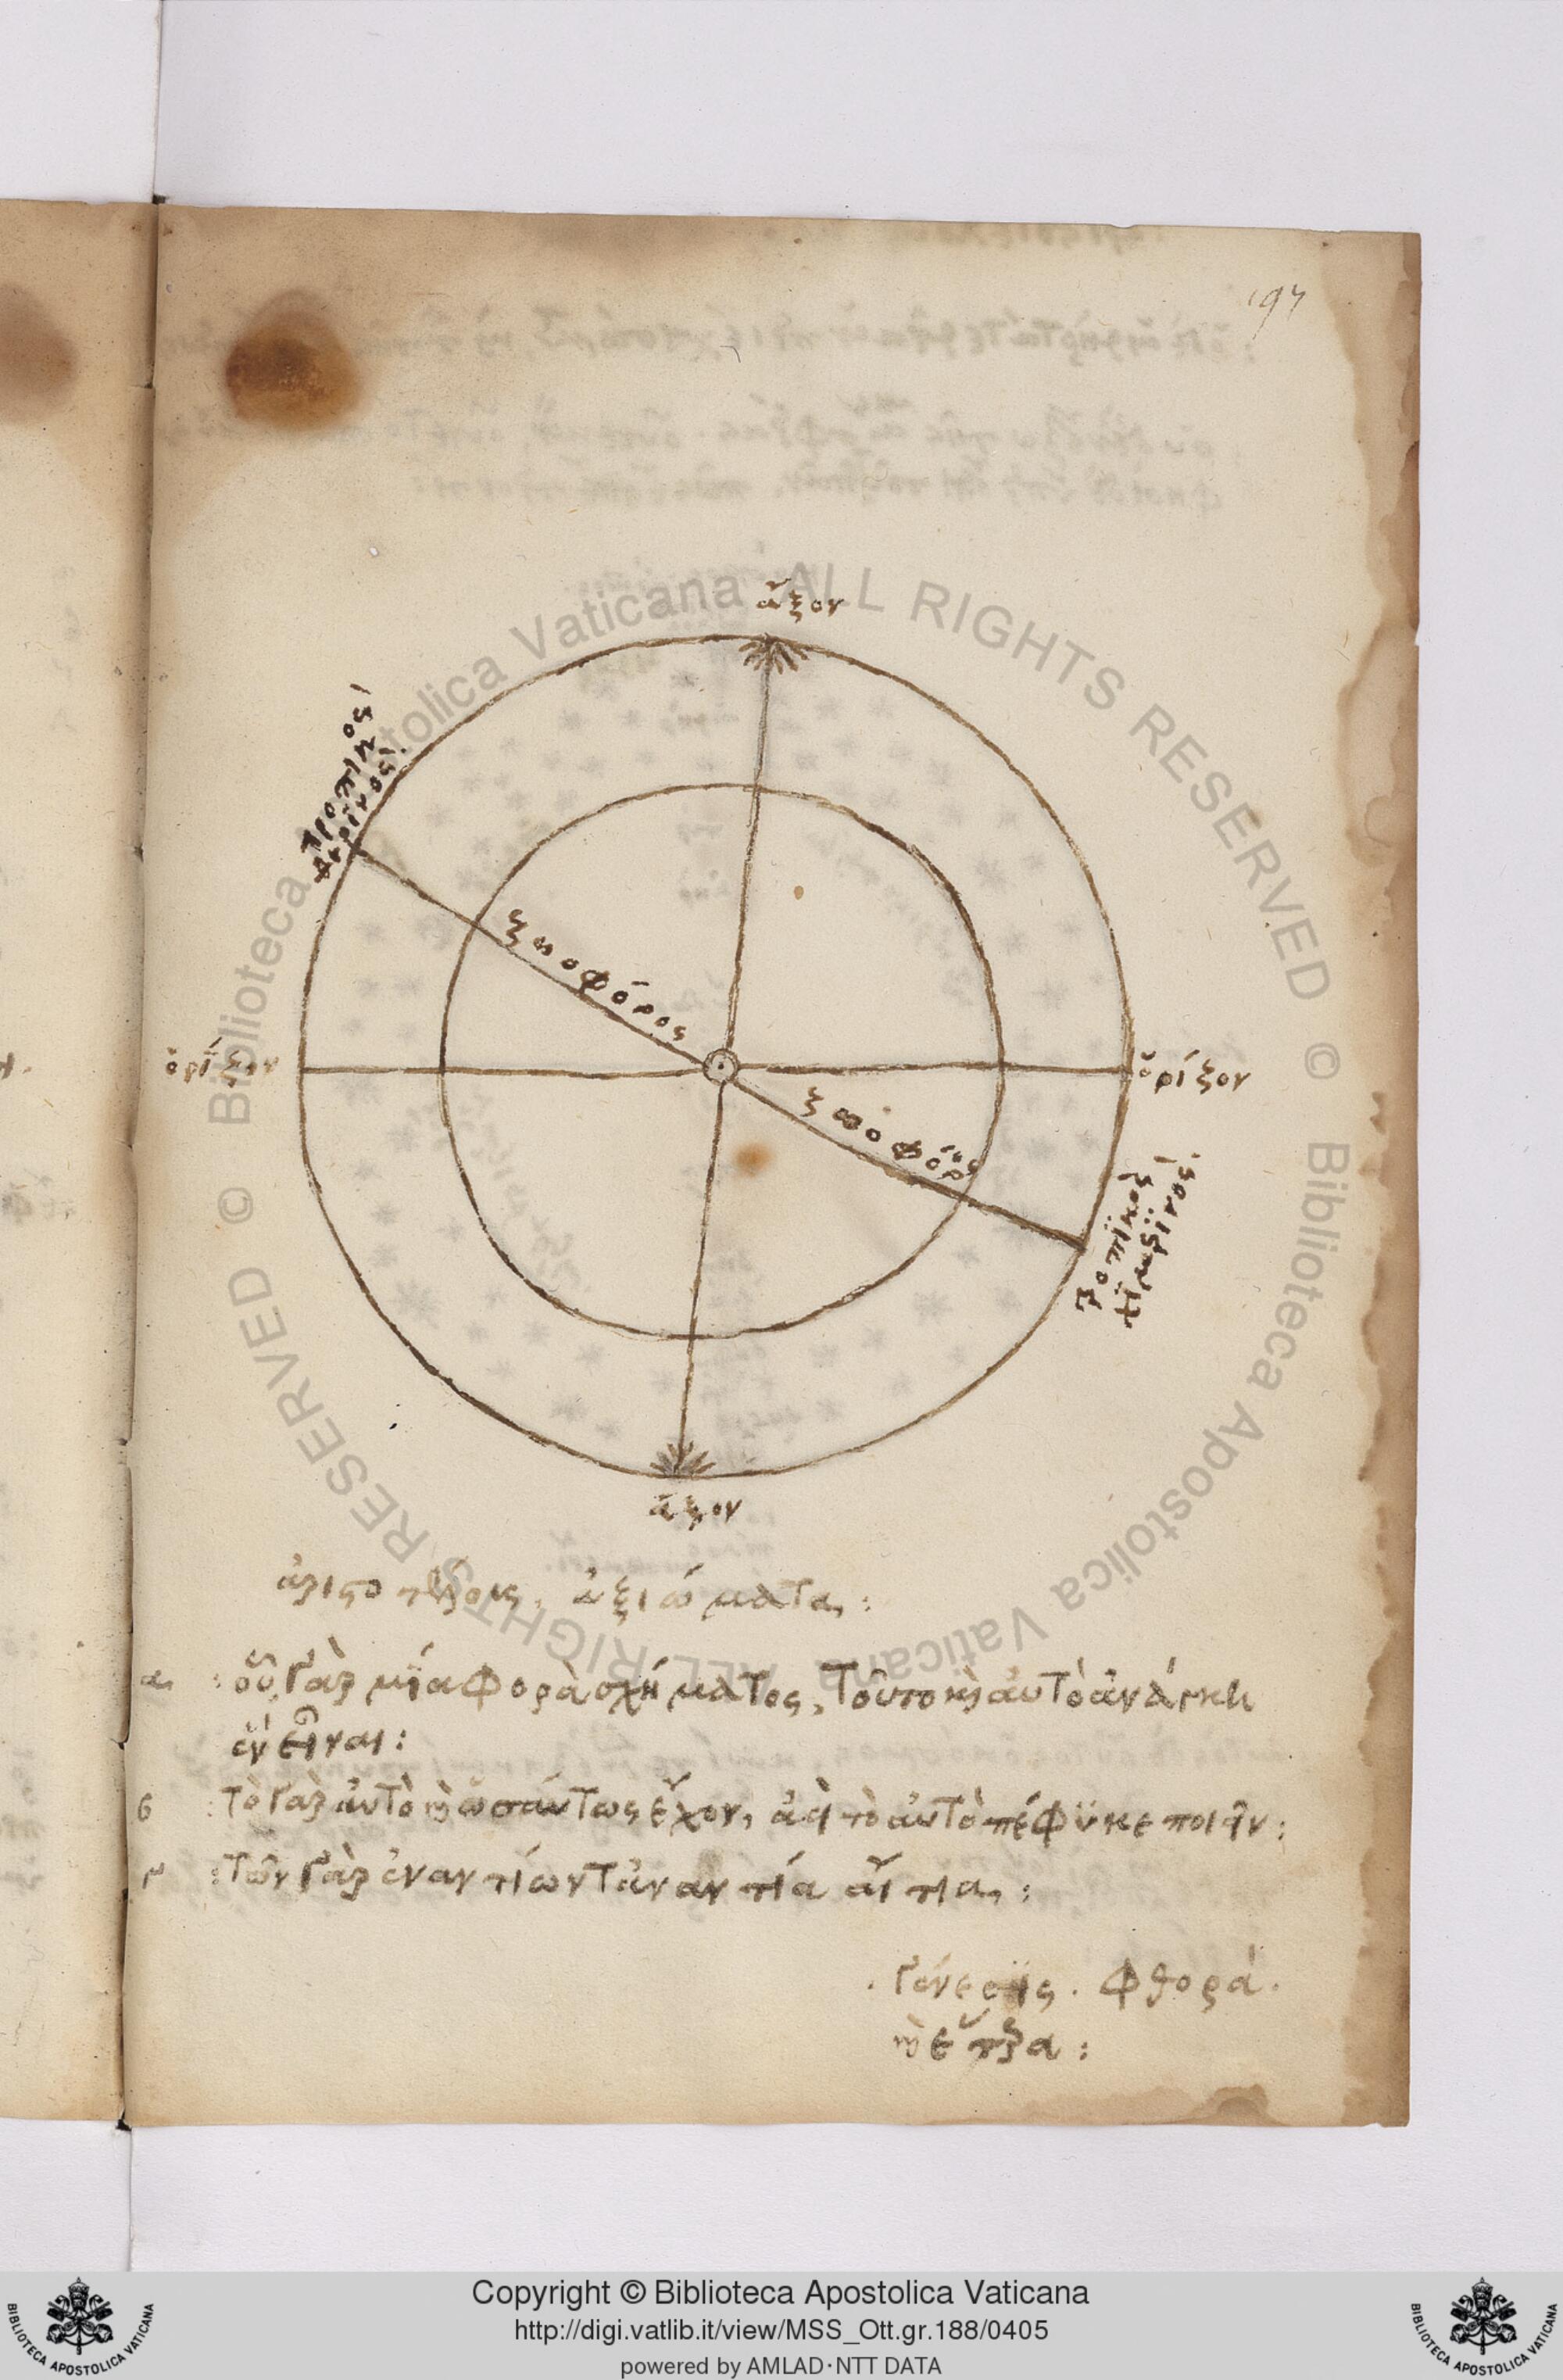 197
ἄξον
τροπικὸς
θερινὸς
ζῳοφόρος
ὁρίζον
ὁρίζον
ζῳοφόρος
τροπϊκὸς
χϊμερϊνὸς
ἄξον
ἀριστοτέλους. ἀξιώματα:
α :οὗ γὰρ μΐα φορὰ σχήματος, τοῦτο καὶ αὐτὸ ἀνάγκη
ἓν εἶναι:
β :τὸ γὰρ αὐτὸ καὶ ὡσαύτως ἔχον, ἀεὶ τὸ αὐτὸ πέφϋκε ποιεῖν:
γ :τῶν γὰρ ἐναντίων τἀναντία αἴτια:
. γένεσϊς . φθορά.
Copyright © Biblioteca Apostolica Vaticana
http://digi.vatlib.it/view/MSS_Ott.gr.188/0405
powered by AMLAD·NTT DATA
BIBLIOTECA APOSTOLICA VATICANA
BIBLIOTECA APOSTOLICA VATICANA
© Biblioteca Apostolica Vaticana ALL RIGHTS RESERVED
© Biblioteca Apostolica Vaticana ALL RIGHTS RESERVED